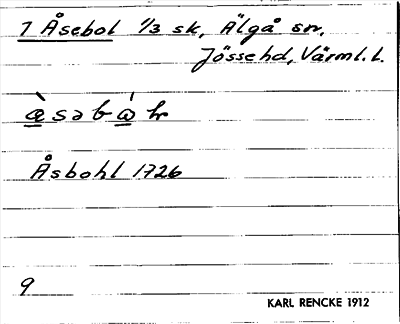 7 Åsebol 1/3 sk, Älgå sn,
Jösse hd, Värml. l.
Åsbohl 1726
9
KARL RENCKE 1912